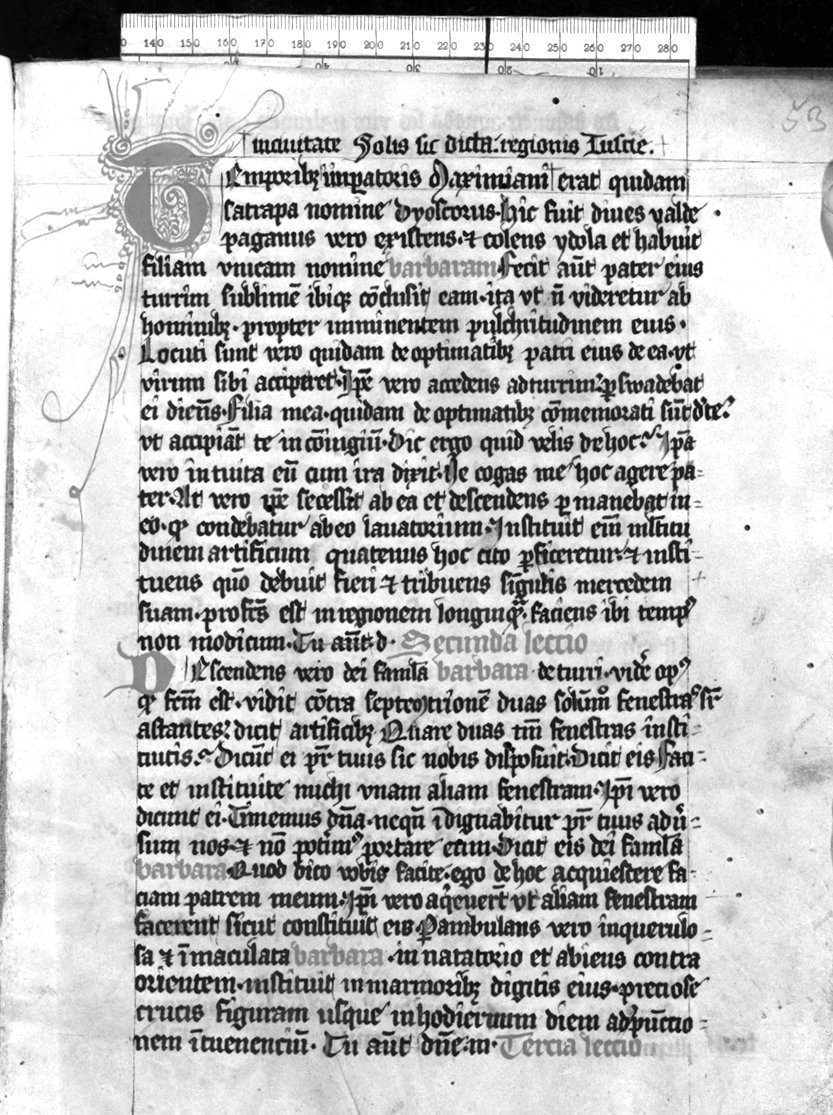 140 150 160 170 180 190 200 210 220 230 240 250 260 270 280
53
in ciuitate Solis sic dicta: regionis Tuscie.
TEmporibꝫ imꝑatoris Maximiani erat quidam
satrapa nomine dyoscorus. hic fuit diues valde
paganus vero existens. ⁊ colens ydola et habuit
filiam vnicam nomine barbaram. fecit aut̄ pater eius
turrim sublimē ibiqꝫ cōclusit eam. ita vt n̄ videretur ab
hominibꝫ. propter imminentem pulchritudinem eius.
Locuti sunt vero quidam de optimatibꝫ patri eius de ea. vt
virum sibi acciperet. Ip̄e vero accedens ad turrim ꝑswadebat
ei dicēs. filia mea. quidam de optimatibꝫ cōmemorati sūt d' te.
vt accipiāt te in cōiugiū. dic ergo quid velis de hoc. Ip̄a
vero intuita eū cum ira dixit. Ne cogas me hoc agere pa-
ter. At vero ip̄e secessit ab ea et descendens ꝑmanebat in
eo. qꝛ condebatur ab eo lauatorium. Instituit em̄ multitu
dinem artificum quatenus hoc cito ꝑficeretur. ⁊ insti-
tuens quō debuit fieri ⁊ tribuens singulis mercedem
suam. profectꝰ est in regionem longinquā. faciens ibi tempꝰ
non modicum. Tu aut̄ d. Secunda leccio
DEscendens vero dei famla barbara de turri. vidē opꝰ
qꝛ fcm̄ est. vidit cōtra septeͫtrionē duas solūmō fenestras sr̄
astantes. dicit artificibꝫ Quare duas tm̄ fenestras insti-
tuitis. Dicūt ei pr̄ tuus sic nobis disposuit. Dicit eis Faci-
te et instituite michi vnam aliam fenestram. Ip̄i vero
dicunt ei. Timemus dn̄a. nequā īdignabitur pr̄ tuus adu̾-
sum nos. ⁊ nō potimꝰ portare eum. Dicit eis dei famlā
barbara. Quod dico vobis facite. ego de hoc acquiescere fa-
ciam patrem meum. Ip̄i vero aq̄euert̄ vt aliam fenestram
facerent sicut constituit eis. Perambulans vero in querulo-
sa ⁊ īmaculata barbara. in natatorio et abiens contra
orientem. instituit in marmoribꝫ digitis eius. preciose
crucis figuram usque in hodiernum diem ad punctio-
nem īuenenciū. Tu aut̄ dn̄e. m. Tercia leccio